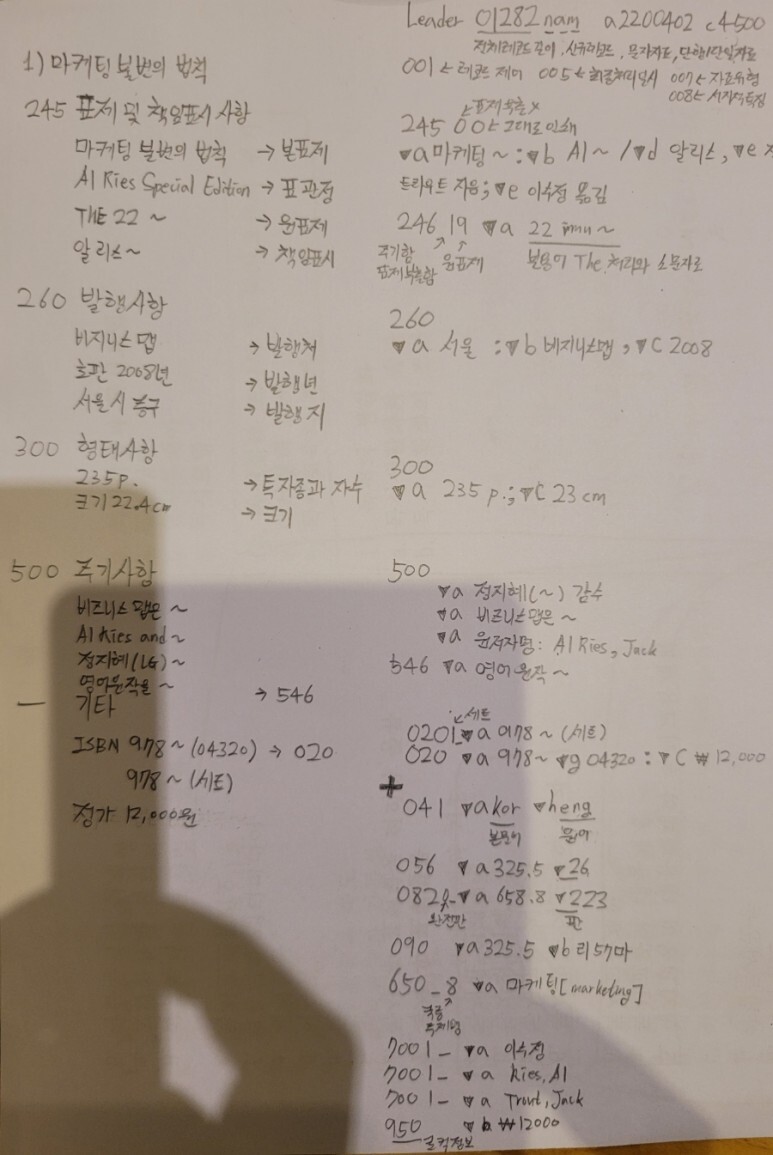 Leader 01282 nam a2200402 c4500
전체레코드길이, 신규레코드, 문자자료, 단행/단일자료
001은 레코드 제어 005은 최종처리일시 007은 자료유형
008은 서지적특징
1) 마케팅 불변의 법칙
245 표제 및 책임표시사항
마케팅 불변의 법칙 → 본표제
Al Ries Special Edition → 표관정
THE 22 ~ → 원표제
알 리스~ → 책임표시
260 발행사항
비지니스 맵 → 발행처
초판 2008년 → 발행년
서울시 중구 → 발행지
300 형태사항
235p. → 특자종과 자수
크기 22.4cm → 크기
500 주기사항
비즈니스 맵은 ~
Al Ries and ~
정지혜(LG) ~
영어원작을 ~ → 546
기타
ISBN 978 ~ (04320) → 020
978 ~ (세트)
정가 12,000원
245 00은 그대로 인쇄
▼a 마케팅 ~ : ▼b Al ~ / ▼d 알 리스, ▼e
트라우트 지음; ▼e 이수정 옮김
246 19 ▼a 22 immu~
주기함
표제부출함 원표제 본문이 The 처리와 소문자로
260
▼a 서울 : ▼b 비지니스맵, ▼C 2008
300
▼a 235 p. ; ▼C 23 cm
500
▼a 정지혜(~) 감수
▼a 비즈니스맵은 ~
▼a 원저자명: Al Ries, Jack
546 ▼a 영어 원작 ~
세트
0201_▼a 978 ~ (세트)
020 ▼a 978~ ▼g 04320 : ▼C ₩12,000
+
041 ▼akor ▼heng
본문어 원어
056 ▼a 325.5 ▼26
082 0_▼a 658.8 ▼223
완전판 판
090 ▼a 325.5 ▼b 리57마
650_8 ▼a 마케팅[marketing]
주제명
7001_ ▼a 이수정
7001_ ▼a Ries, Al
7001_ ▼a Trout, Jack
950 ▼b ₩12000
로컬정보